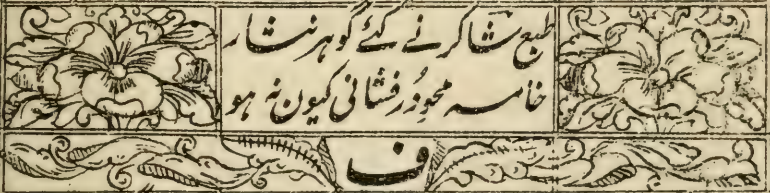 طبع شاکر نے کئے گوہر نثار
خامہ محوِ دُر فشانی کیوں نہ ہو
ف